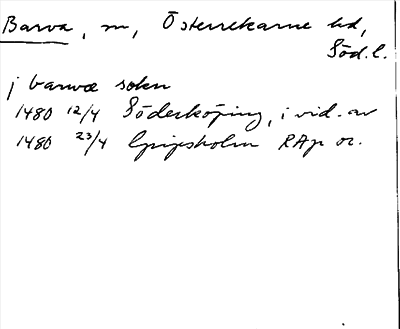 Barva, sn, Österrekarne hd,
Söd.l.
j barwæ sokn
1480 12/4 Söderköping, i vid. av
1480 23/4 Gripsholm RAp or.